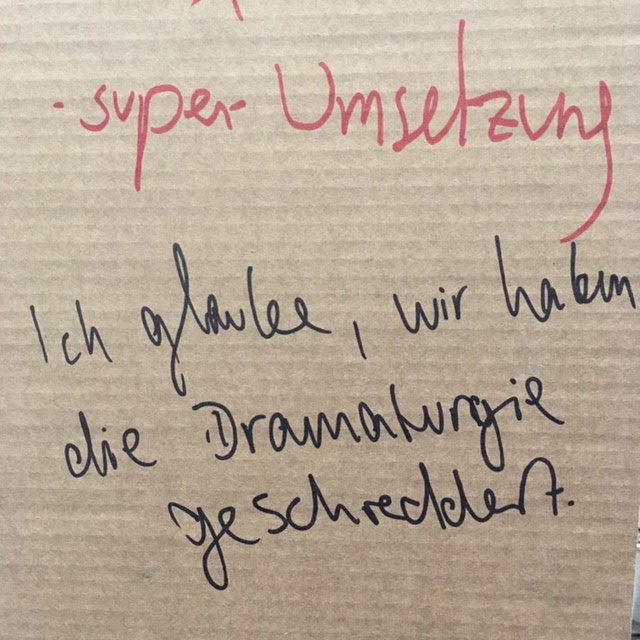 - super Umsetzung
Ich glaube, wir haben
die Dramaturgie
geschreddert.